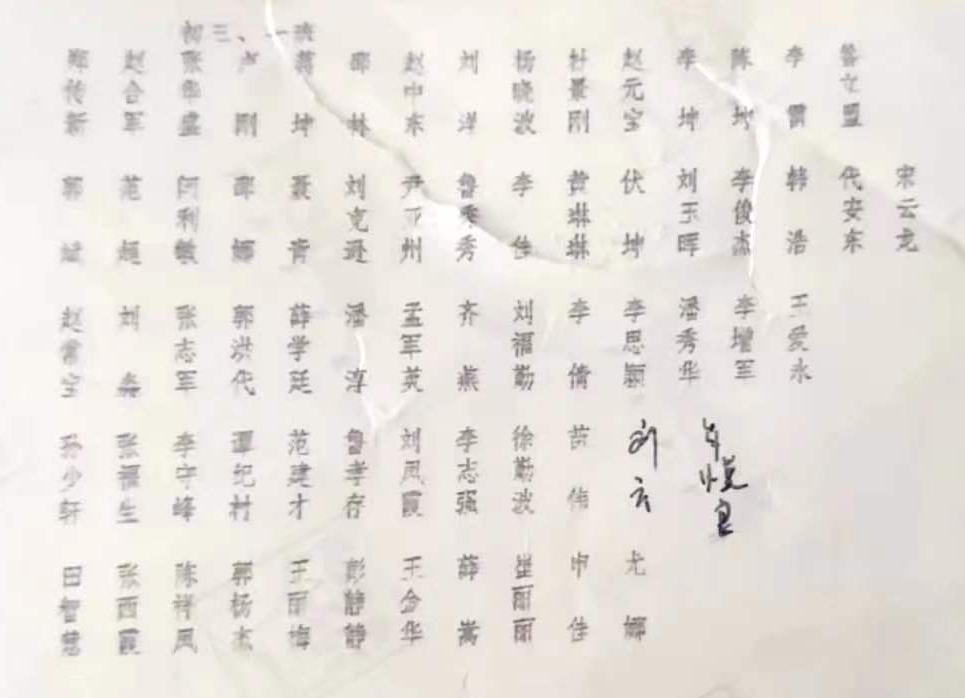 初三、一班
郑传新 赵合军 张华盛 卢刚 蒋坤 邵林 赵中东 刘洋 杨晓波 杜景刚 赵元宝 李坤 陈坤 李雷 鲁立盟
郭斌 范超 阿利敏 邵娜 聂青 刘克逊 尹亚州 鲁秀秀 李佳 黄琳琳 伏坤 刘玉晖 李俊杰 韩浩 代安东 宋云龙
赵常宝 刘森 张志军 郭洪代 薛学廷 潘淳 孟军英 齐燕 刘福勤 李倩 李思颖 潘秀华 李增军 王爱永
孙少轩 张福生 李守峰 谭纪村 范建才 鲁孝存 刘凤霞 李志强 徐勤波 苗伟 刘云
田智慧 张西霞 陈祥凤 郭杨杰 王丽梅 彭静静 王金华 薛嵩 崔丽丽 申佳 尤娜